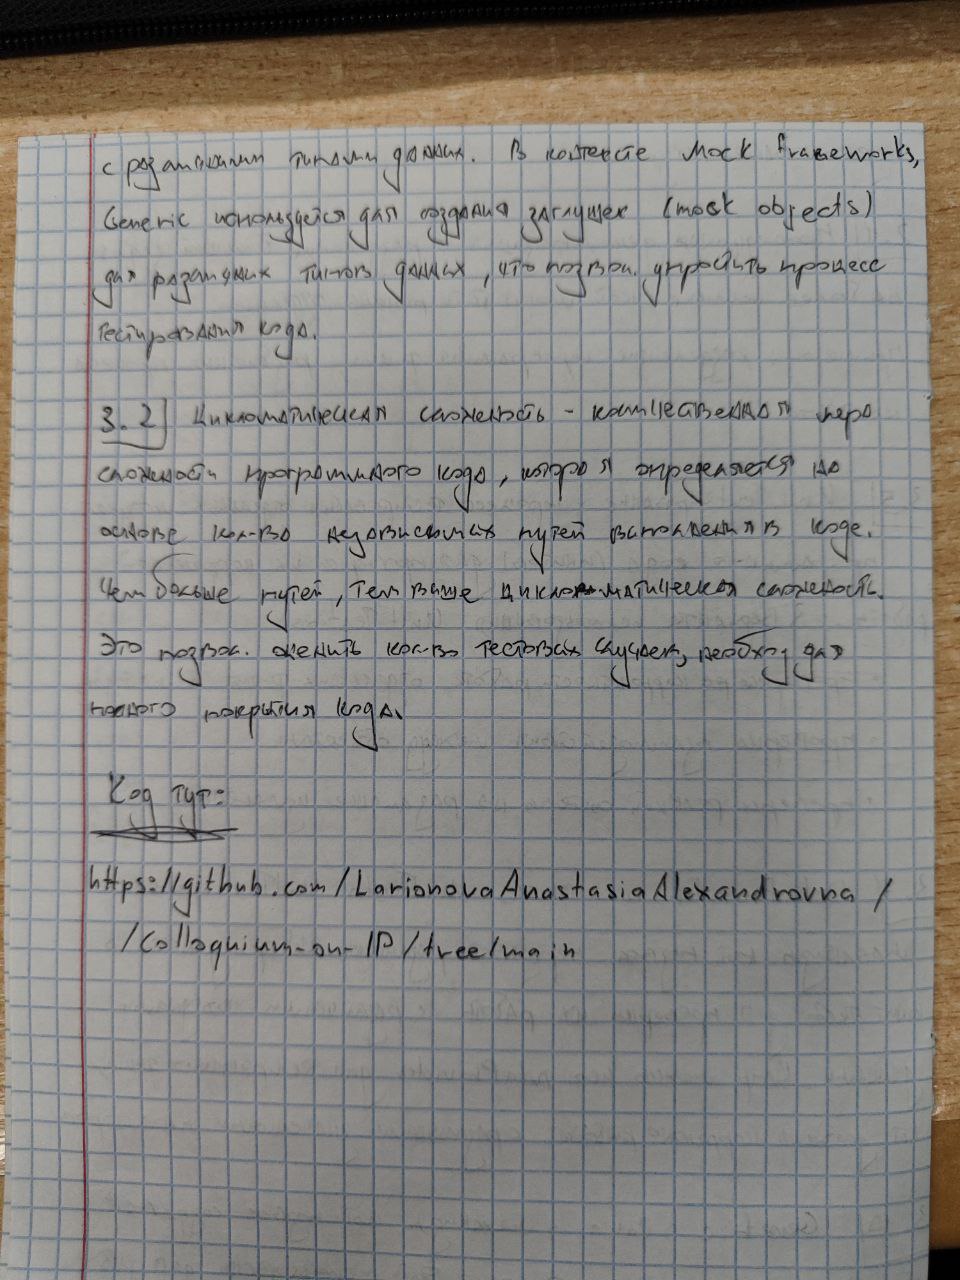 с различными типами данных. В контексте Mock frameworks,
Generic используется для создания заглушек (mock objects)
для различных типов данных, что позвол. упростить процесс
тестирования кода.
3.2 Цикломатическая сложность - количественная мера
сложности программного кода, которая определяется на
основе кол-во независимых путей выполнения в коде.
Чем больше путей, тем выше цикломатическая сложность.
Это позвол. оценить кол-во тестовых случаев, необход для
полного покрытия кода.
Код тут:
https://github.com/LarionovaAnastasiaAlexandrovna/
/Colloquium-on-IP/tree/main